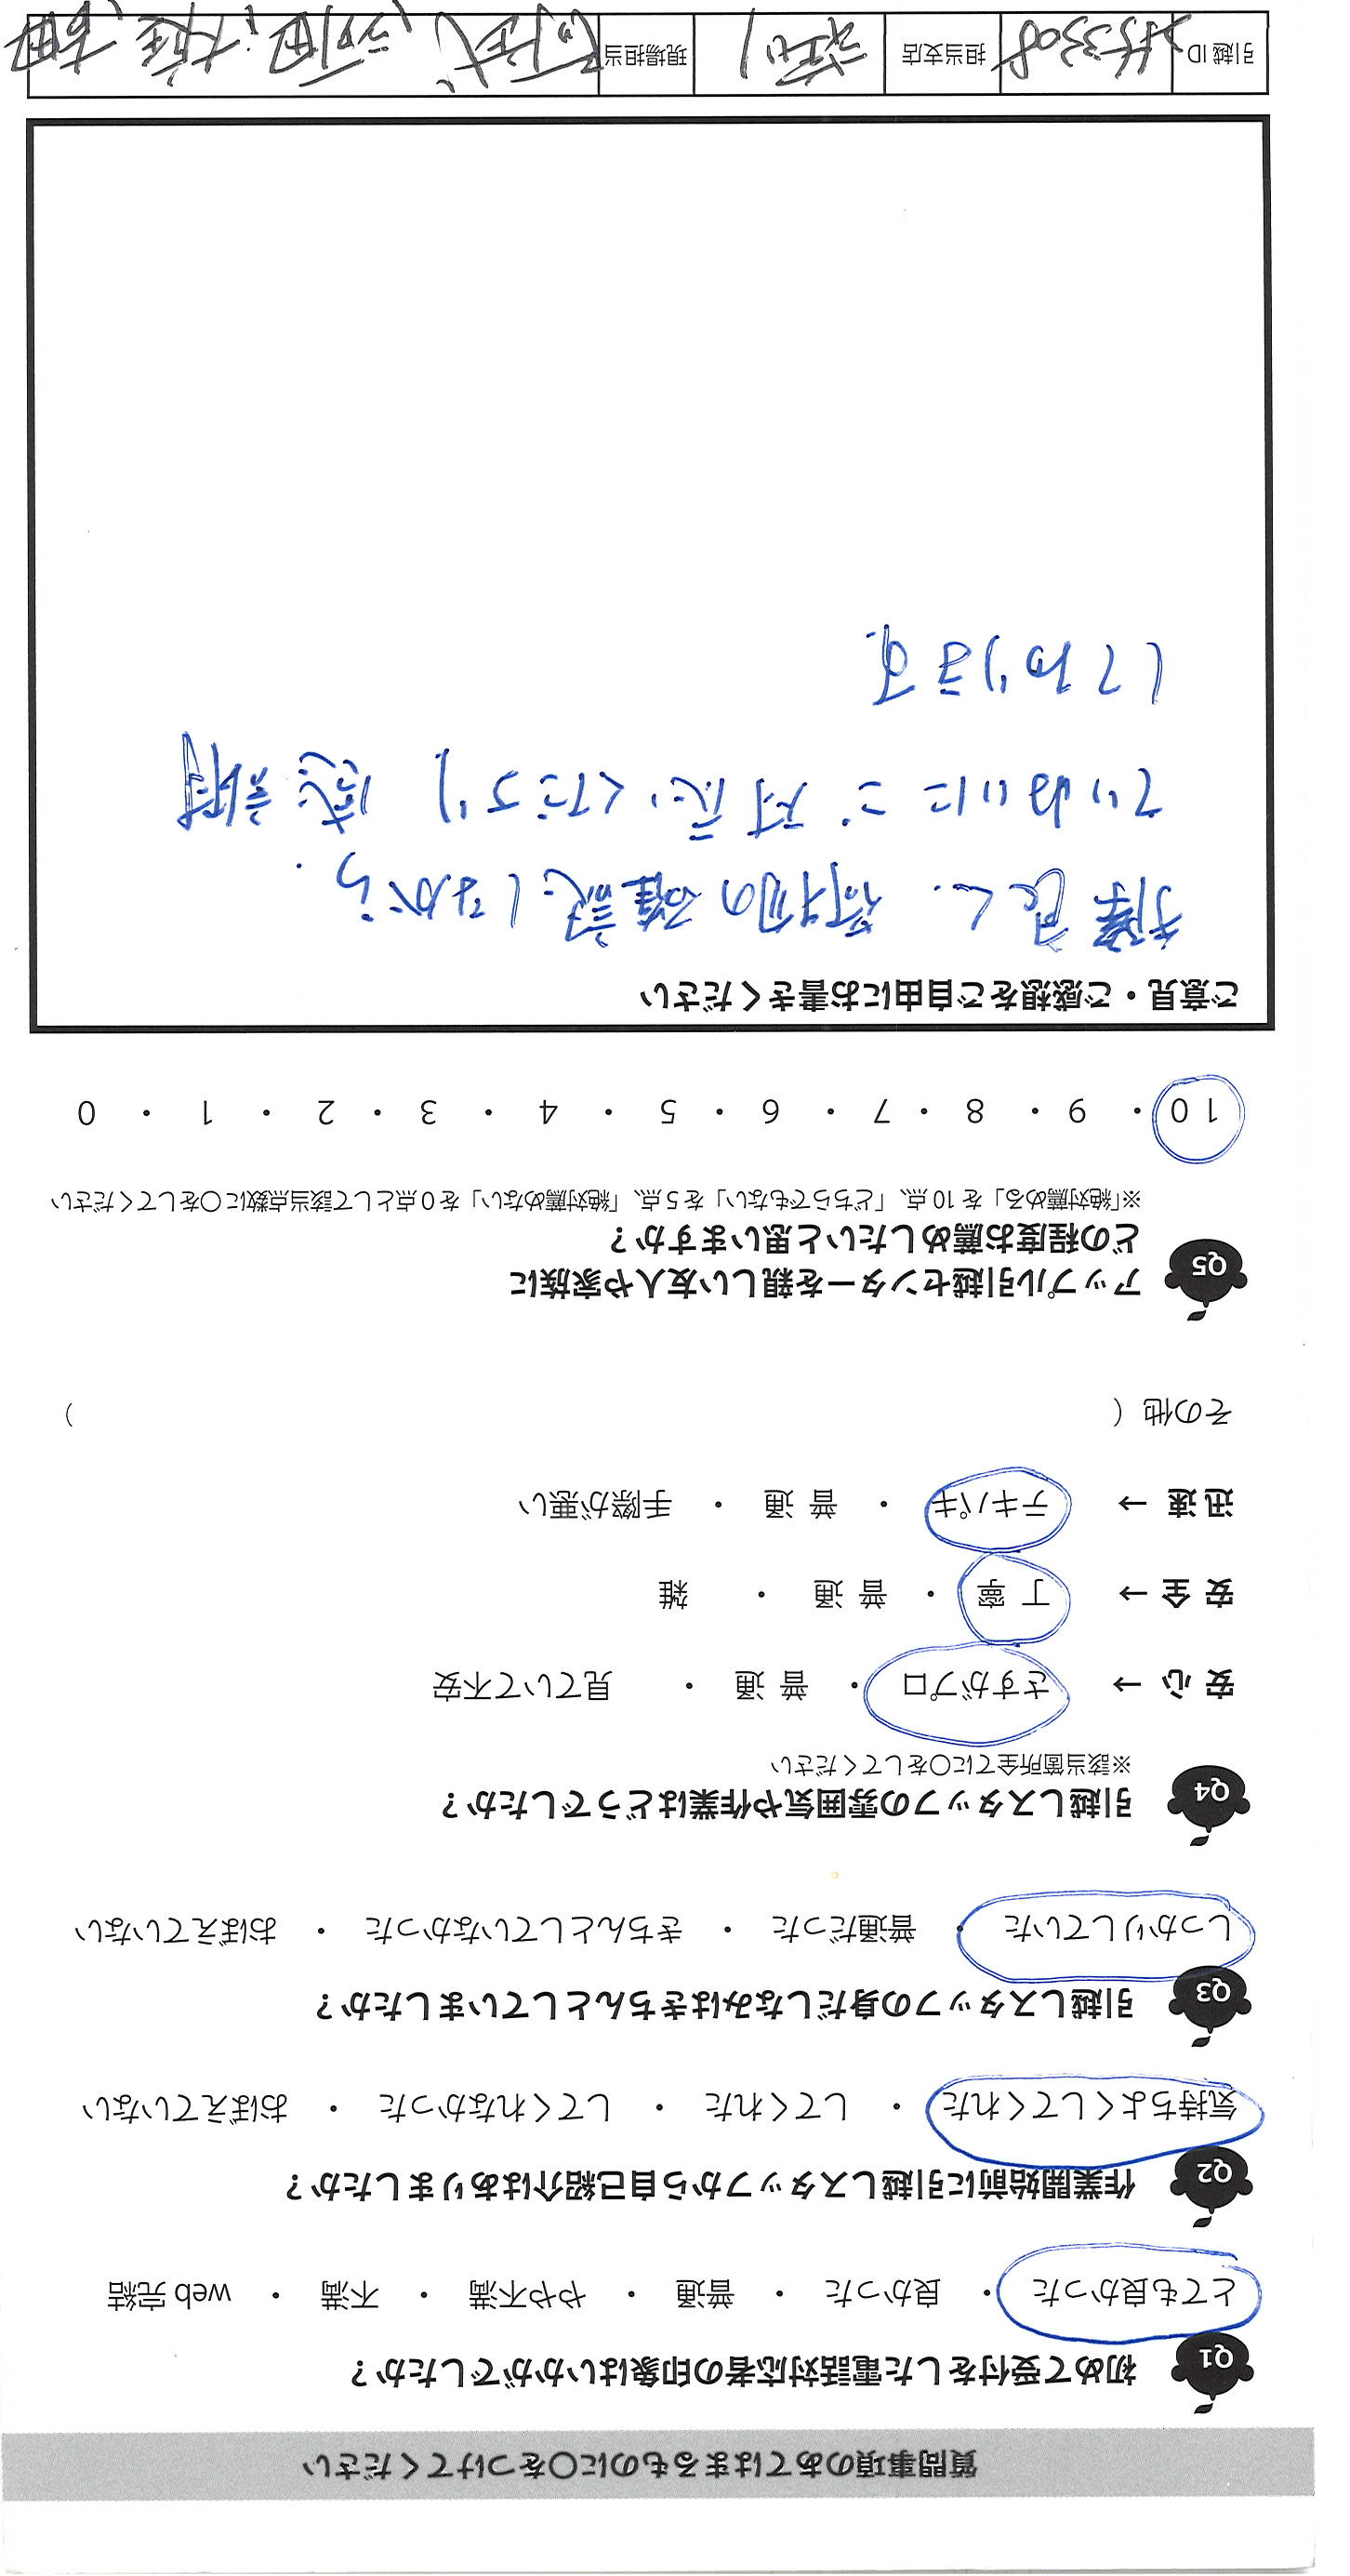 質問事項のあてはまるものに○をつけてください
Q1 初めて受付をした電話対応者の印象はいかがでしたか？
とても良かった ・ 良かった ・ 普通 ・ やや不満 ・ 不満 ・ web 完結
Q2 作業開始前に引越しスタッフから自己紹介はありましたか？
気持ちよくしてくれた ・ してくれた ・ してくれなかった ・ おぼえていない
Q3 引越しスタッフの身だしなみはきちんとしていましたか？
しっかりしていた ・ 普通だった ・ きちんとしていなかった ・ おぼえていない
Q4 引越しスタッフの雰囲気や作業はどうでしたか？
※該当箇所全てに○をしてください
安 心 → さすがプロ ・ 普 通 ・ 見ていて不安
安 全 → 丁 寧 ・ 普 通 ・ 雑
迅 速 → テキパキ ・ 普 通 ・ 手際が悪い
その他（ ）
Q5 アップル引越センターを親しい友人や家族に
どの程度お薦めしたいと思いますか？
※「絶対薦める」を 10 点、「どちらでもない」を 5 点、「絶対薦めない」を 0 点として該当点数に○をしてください
10 ・ 9 ・ 8 ・ 7 ・ 6 ・ 5 ・ 4 ・ 3 ・ 2 ・ 1 ・ 0
ご意見・ご感想をご自由にお書きください
際良く、荷物の確認しながら、
ていねいにご対応くださり 感謝
しております
引越 ID 担当支店 現場担当